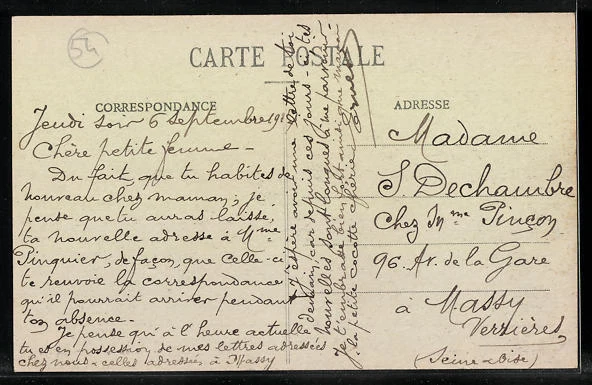 54
CARTE POSTALE
CORRESPONDANCE
ADRESSE
Jeudi soir 6 septembre 19
Chère petite femme -
Du fait, que tu habites de
nouveau chez maman; je
pense que tu auras laissé,
ta nouvelle adresse à Mme
Pinguier, de façon, que celle-ci
te renvoie la correspondance
qu'il pourrait arriver pendant
ton absence.
Je pense qu'à l'heure actuelle
tu es en possession de mes lettres adressées
chez nous & celles adressées à Massy
J'espère avoir une lettre de toi
demain, car depuis ces jours-ci tes
nouvelles sont longues à me parvenir.
Je t'embrasse bien fort ainsi que maman
& la petite cocotte chérie
Madame
S Dechambre
Chez Mme Pinçon
96. Av. de la Gare
à Massy
Verrières
(Seine & Oise)